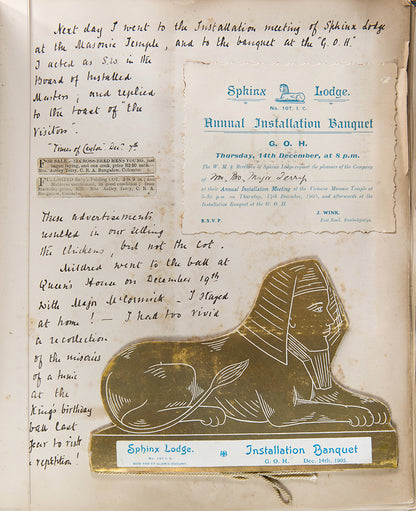 Next day I went to the Installation meeting of Sphinx Lodge
at the Masonic Temple, and to the banquet at the "G.O.H."
I acted as S.W. in the
Board of Installed
Masters; and replied
to the toast of "the
Visitors".
"Times of Ceylon" Decr 7th
FOR SALE.—SIX CROSS-BRED HENS YOUNG, just
began laying, and one cock, price R2.50 each.
Mrs. Astley Terry, C. R. A. Bungalow, Colombo.
Mrs. Astley Terry, C. R. A.
Bungalow, Colombo.
These advertisements
resulted in our selling
the chickens, but not the cot.
Mildred went to the ball at
Queen's House on December 19th
with Major McCormick – I stayed
at home! – I had too vivid
a recollection
of the miseries
of a tunic
at the
King's birthday
ball last
year to risk
a repetition!
Sphinx Lodge.
No. 107, I. C.
Annual Installation Banquet
G. O. H.
Thursday, 14th December, at 8 p.m.
The W. M. & Brethren of Sphinx Lodge request the pleasure of the Company
of Wor. Bro. Major Terry
at their Annual Installation Meeting at the Victoria Masonic Temple at
5-30 p.m. on Thursday, 14th December, 1905, and afterwards at the
Installation Banquet at the G. O. H.
R.S.V.P.
J. WINK,
Sphinx Lodge.
No. 107 I. C.
Installation Banquet
G. O. H. Dec. 14th, 1905.